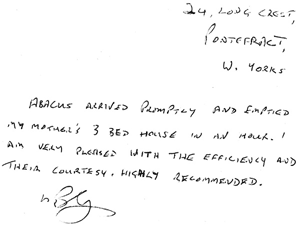 24, LONG CREST,
PONTEFRACT,
W. YORKS
ABACUS ARRIVED PROMPTLY AND EMPTIED
MY MOTHER'S 3 BED HOUSE IN AN HOUR. I
AM VERY PLEASED WITH THE EFFICIENCY AND
THEIR COURTESY. HIGHLY RECOMMENDED.